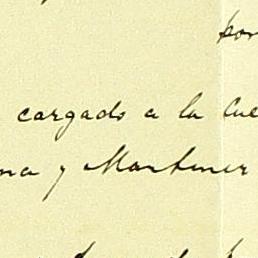 por
cargado a la Cue
na y Martiner